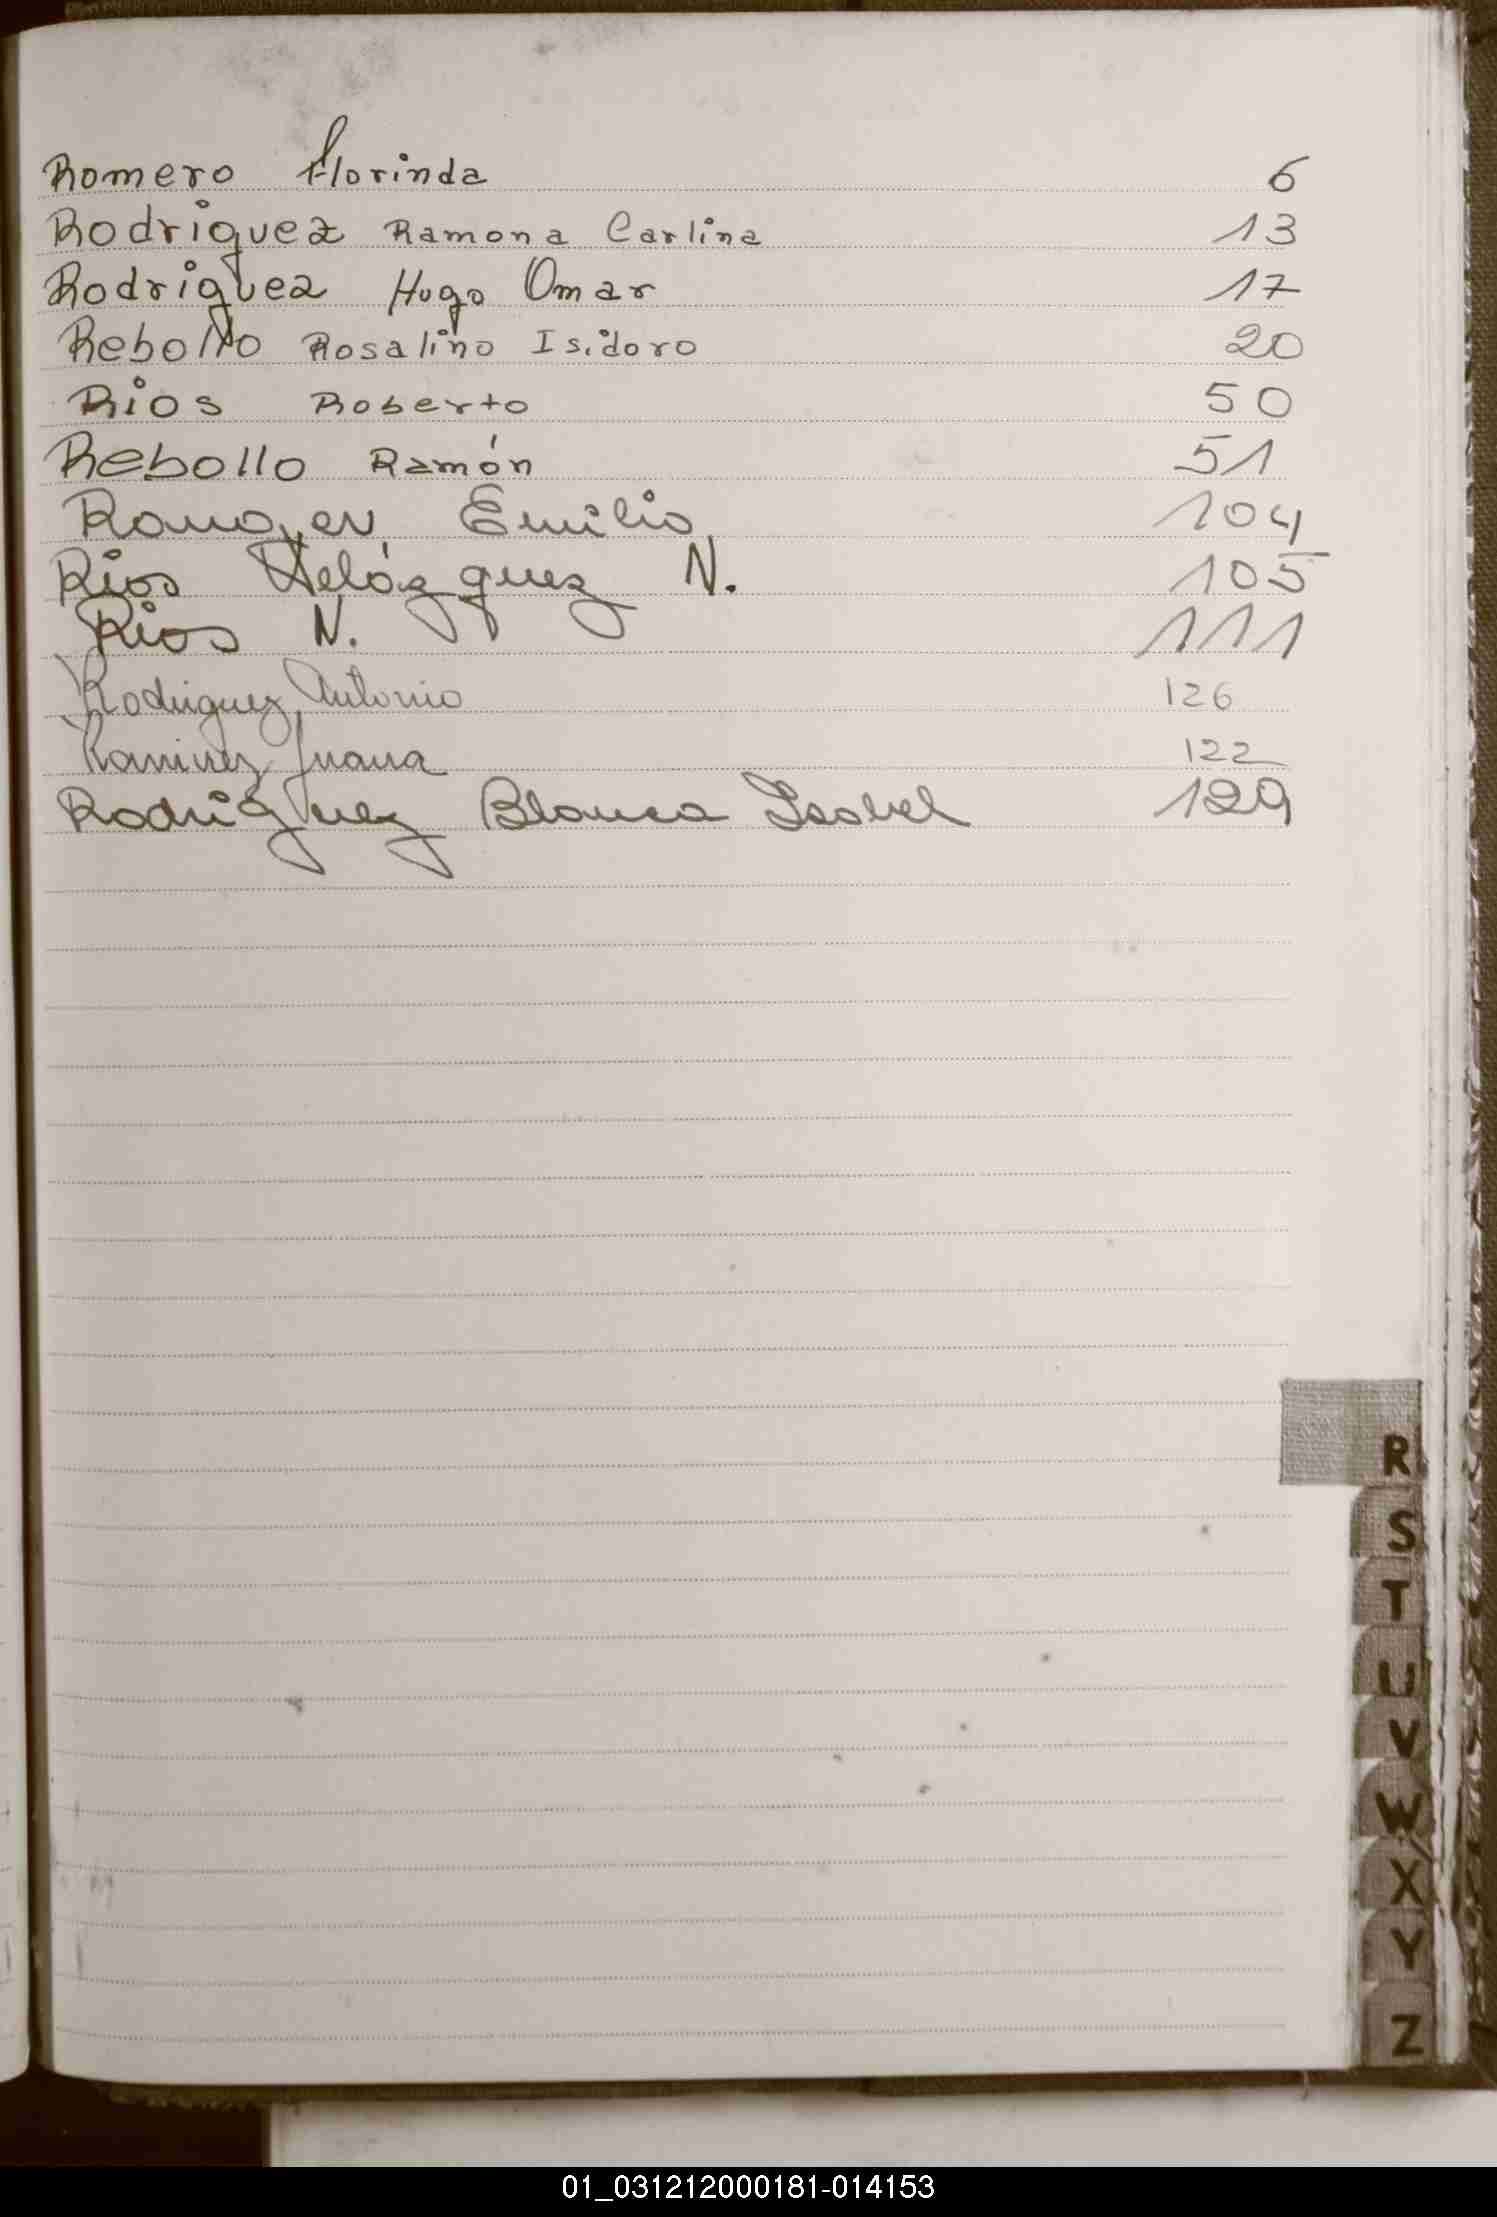 Romero Florinda 6
Rodriguez Ramona Carlina 13
Rodriguez Hugo Omar 17
Rebollo Rosalino Isidoro 20
Rios Roberto 50
Rebollo Ramón 51
Emilio 104
Rios Velázquez N. 105
Rios N. 111
Rodriguez Antonio 126
Ramirez Juana 122
Rodriguez Blanca Isabel 129
R
S
T
U
V
W
X
Y
Z
01_031212000181-014153